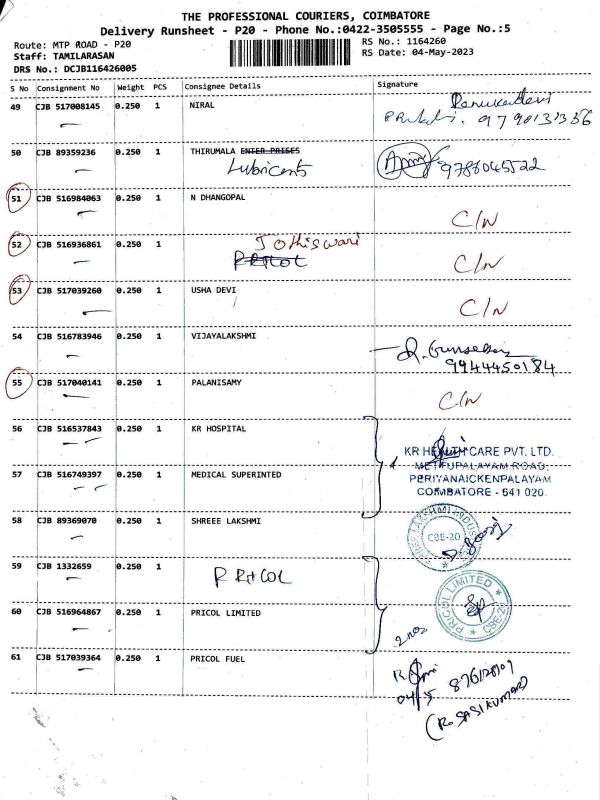 THE PROFESSIONAL COURIERS, COIMBATORE
Delivery Runsheet - P20 - Phone No.:0422-3505555 - Page No.:5
Route: MTP ROAD - P20
Staff: TAMILARASAN
DRS No.: DCJB116426005
RS No.: 1164260
RS Date: 04-May-2023
S No Consignment No Weight PCS Consignee Details Signature
49 CJB 517008145 0.250 1 NIRAL
9790131356
50 CJB 89359236 0.250 1 THIRUMALA ENTER PRISES
Lubricants 9786045522
51 CJB 516984063 0.250 1 N DHANGOPAL
C/N
52 CJB 516936861 0.250 1 Jothiswari
PRICOL C/N
53 CJB 517039260 0.250 1 USHA DEVI
C/N
54 CJB 516783946 0.250 1 VIJAYALAKSHMI
9944450184
55 CJB 517040141 0.250 1 PALANISAMY
C/N
56 CJB 516537843 0.250 1 KR HOSPITAL
KR HEALTH CARE PVT. LTD.
METTUPALAYAM ROAD,
PERIYANAICKENPALAYAM
COIMBATORE - 641 020.
57 CJB 516749397 0.250 1 MEDICAL SUPERINTED
58 CJB 89369070 0.250 1 SHREEE LAKSHMI
CBE-20
59 CJB 1332659 0.250 1
PRICOL
60 CJB 516964867 0.250 1 PRICOL LIMITED
PRICOL LIMITED
CBE-20
2 nos
61 CJB 517039364 0.250 1 PRICOL FUEL
04/5
(R. SASIKUMAR)